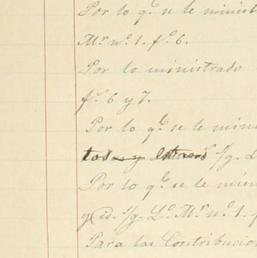 Por lo qe. se le minist
Mr. no. 1. fo. 6.
Por lo ministrado
fo. 6 y 7.
Por lo qe. se le mini
s/g. d
Por lo qe. se le mini
y id. s/g. Lo. Mr. no. 1.
Para las Contribucio